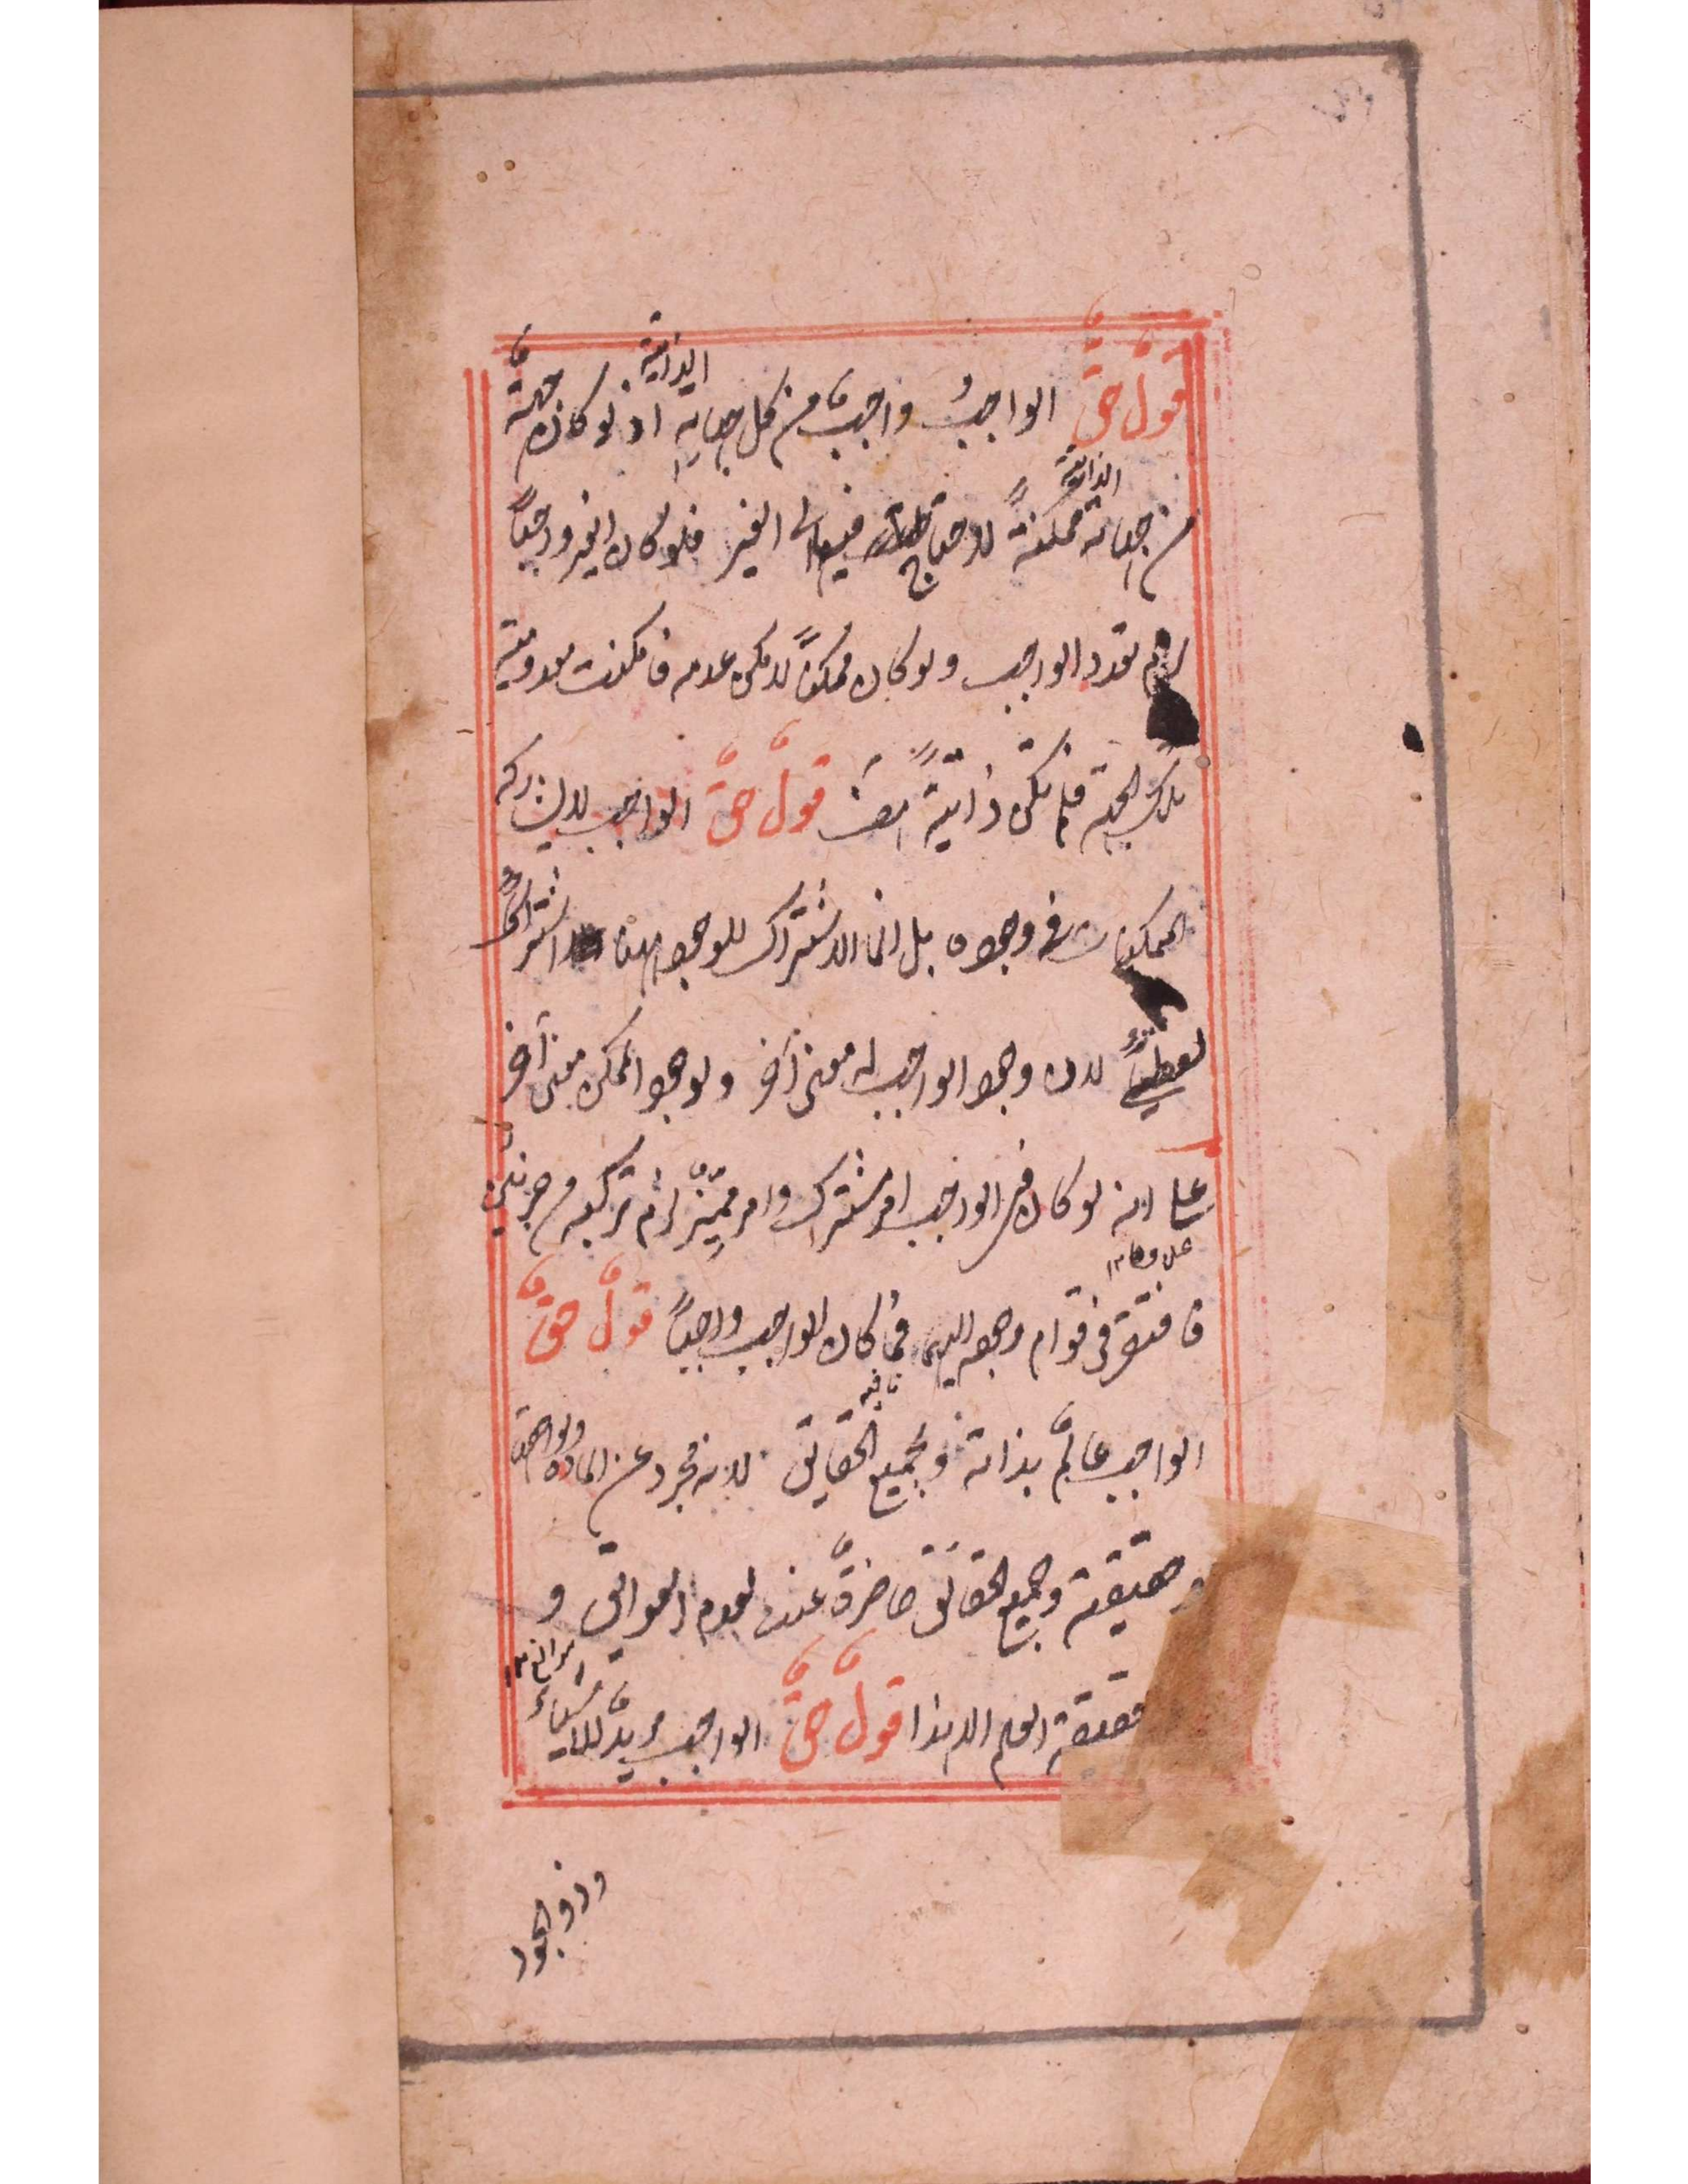 قولٌ حقٌ الواجبُ واجبٌ من كل جهاته الذاتية اذ لو كان جهةٌ
من جهاته الذاتية ممكنةً لاحتاج فيها الى الغير فلو كان الغير واجباً
لزم تعدد الواجب ولو كان ممكناً لامكن عدمه فامكنت معدومية
تلك الجهة فلم تكن ذاتيةً هف قولٌ حقٌ الواجب لا يشاركه
الممكنات فى وجوده بل انما الاشتراك للوجود بينهما اشتراكاً
لفظياً لان وجود الواجب له معنى آخر ولوجود الممكن معنى آخر
على انه لو كان فى الواجب امر مشترك وامر مميِّزٌ لزم تركبه من جزئين
فافتقر فى قوام وجوده اليهما فما كان الواجب واجباً قولٌ حقٌ
الواجب عالمٌ بذاته وبجميع الحقائق لانه مجرد عن المادة ولواحقها
وحقيقته وجميع الحقائق حاضرةٌ عنده لعدم العوائق و
الموانع
حقيقة العلم الا هذا قولٌ حقٌ الواجب مريدٌ للاشياء
وذو الجود